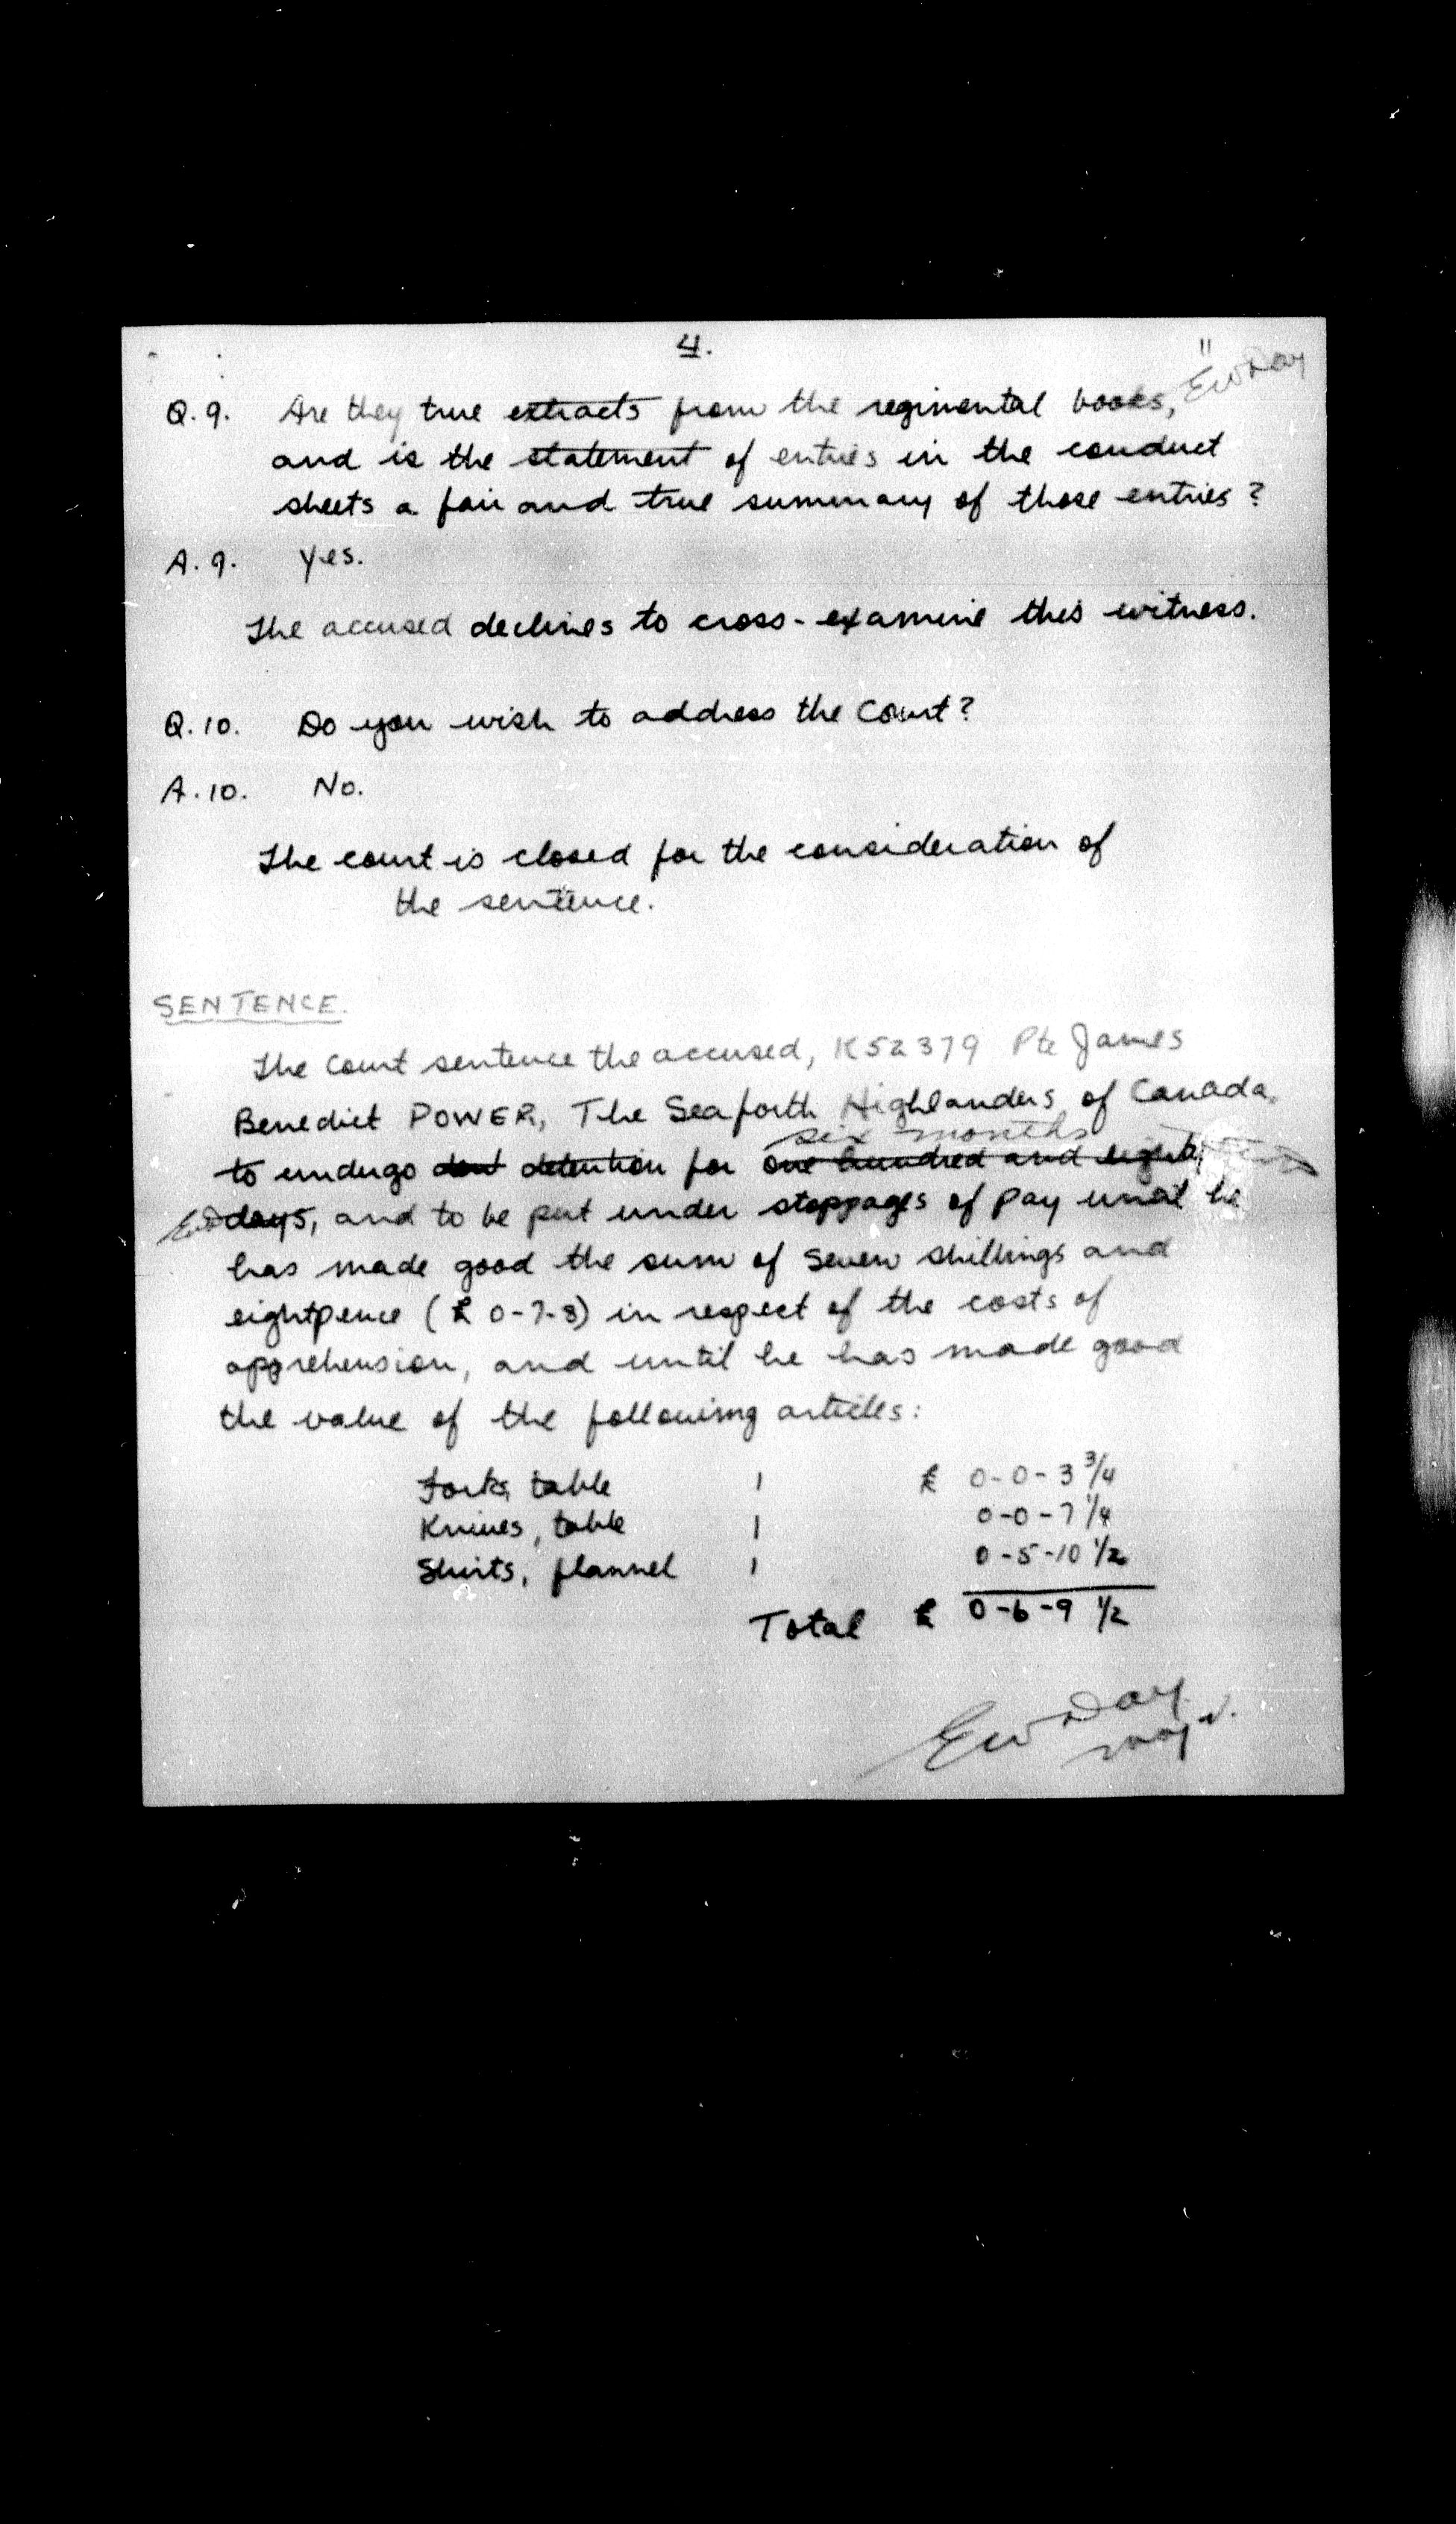 4.
"
EW Day
Q.9. Are they true extracts from the regimental books,
and is the statement of entries in the conduct
sheets a fair and true summary of those entries?
A.9. Yes.
The accused declines to cross-examine this witness.
Q.10. Do you wish to address the Court?
A.10. No.
The court is closed for the consideration of
the sentence.
SENTENCE.
The Court sentence the accused, K52379 Pte James
Benedict POWER, The Seaforth Highlanders of Canada,
six months
to undergo detention for one hundred and eighty
EWD days, and to be put under stoppages of pay until he
has made good the sum of seven shillings and
eightpence (£ 0-7-8) in respect of the costs of
apprehension, and until he has made good
the value of the following articles:
Forks, table 1 £ 0-0-3 3/4
Knives, table 1 0-0-7 1/4
Shirts, flannel 1 0-5-10 1/2
Total £ 0-6-9 1/2
EW Day
Major